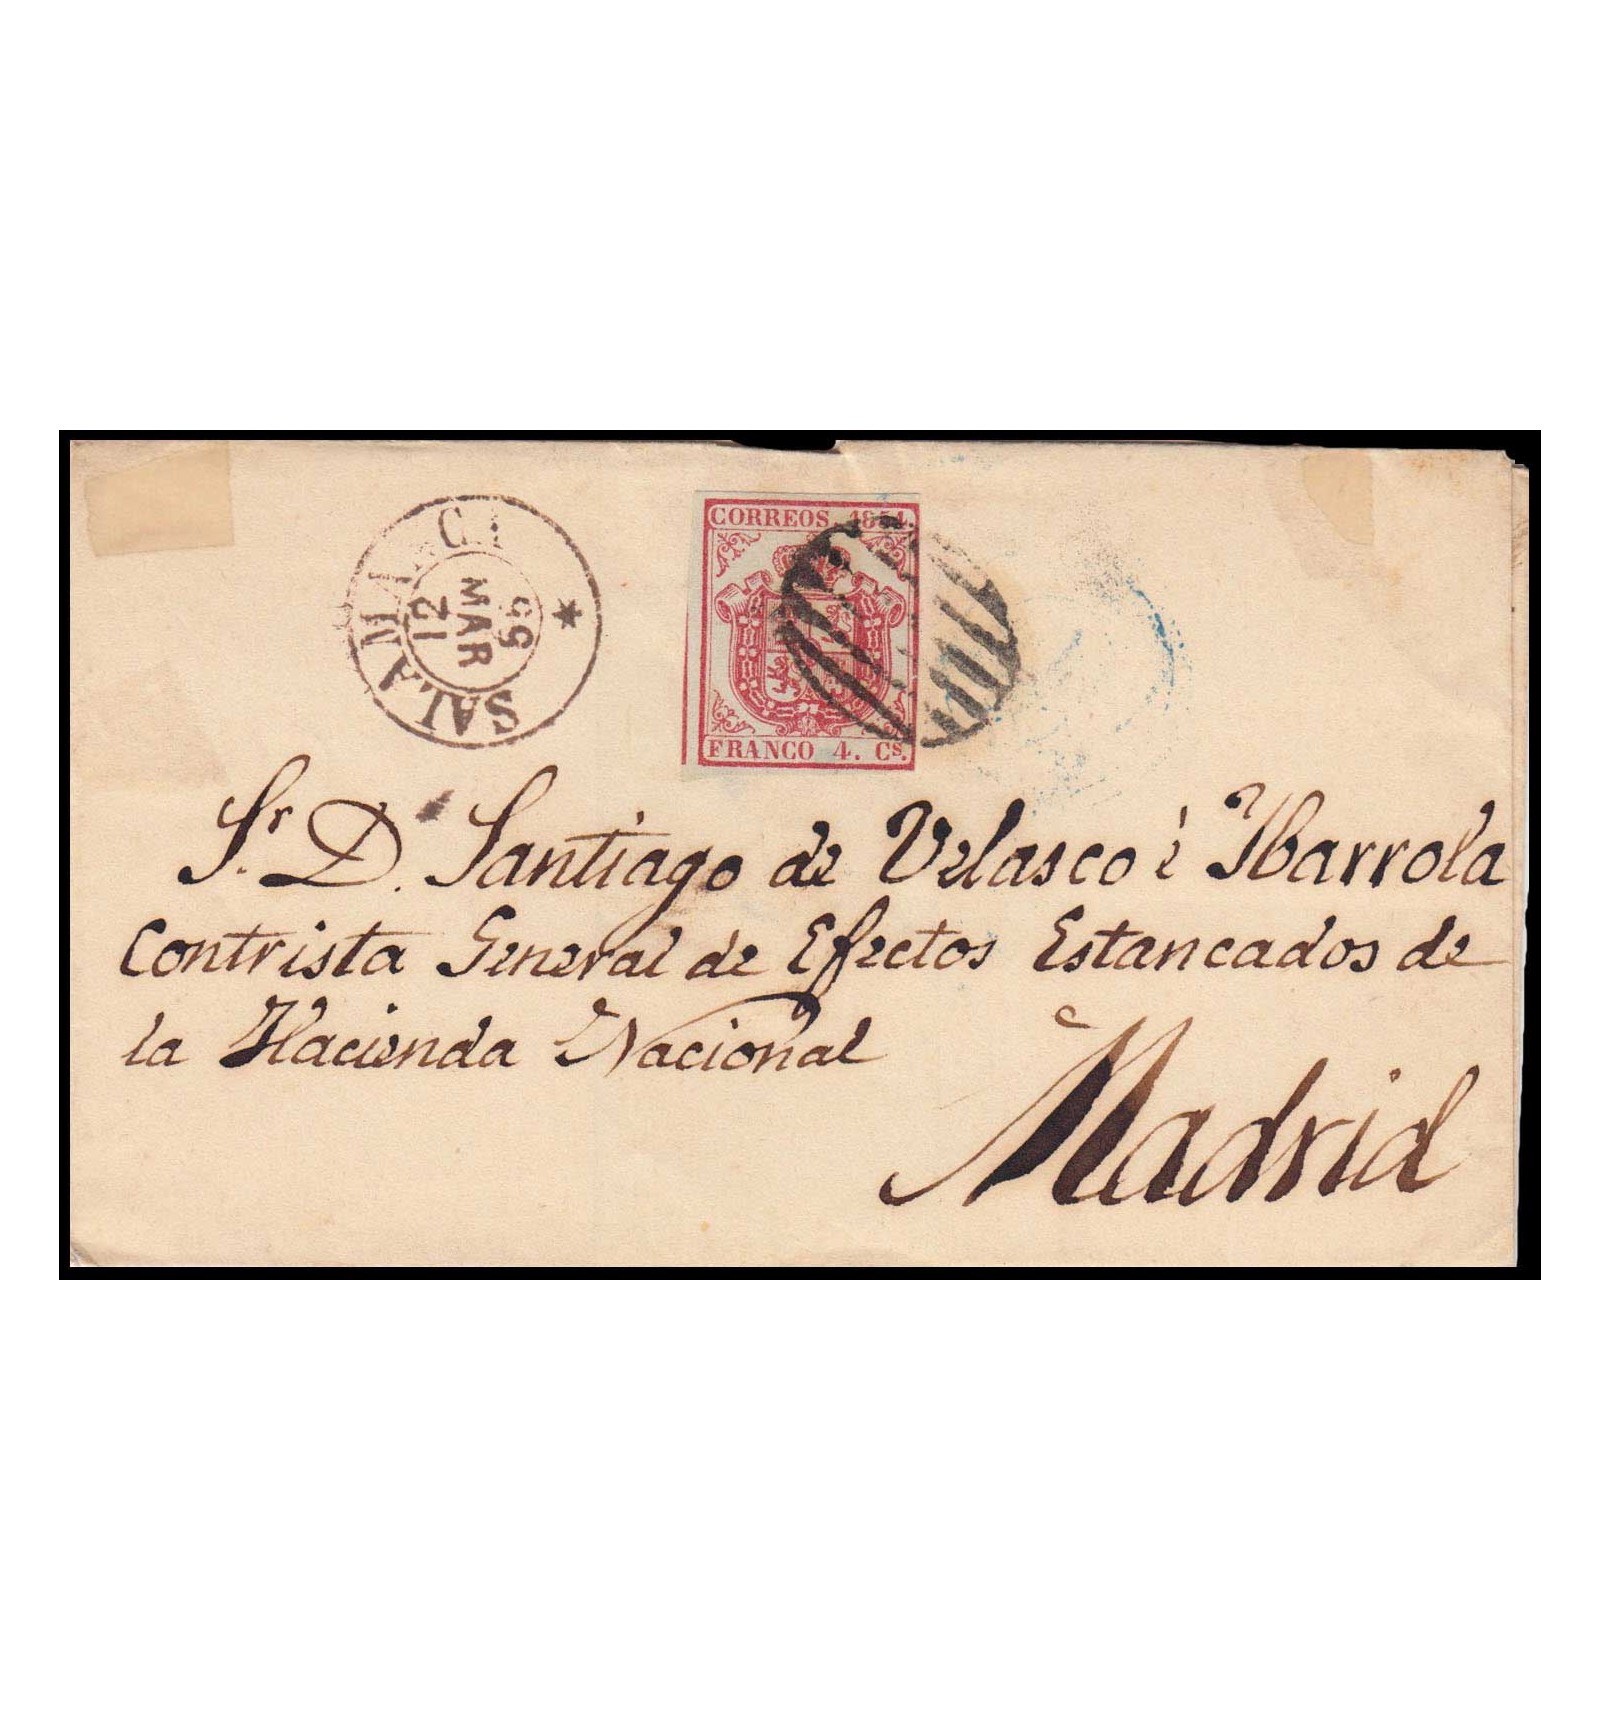 SALAMANCA
12 MAR 55
CORREOS 1854
FRANCO 4. Cs.
Sr. D. Santiago de Velasco é Ybarrola
Contrista General de Efectos Estancados de
la Hacienda Nacional
Madrid